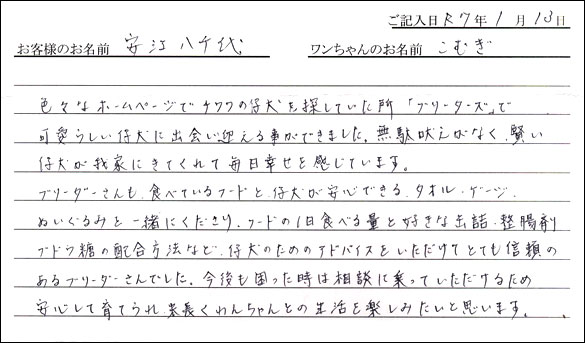 ご記入日 R7年 1月 13日
お客様のお名前 安江 八千代 ワンちゃんのお名前 こむぎ
色々なホームページでチワワの仔犬を探していた所「ブリーダーズ」で
可愛らしい仔犬に出会い迎える事ができました。無駄吠えがなく、賢い
仔犬が我家にきてくれて毎日幸せを感じています。
ブリーダーさんも、食べているフードと、仔犬が安心できる、タオル・ゲージ、
ぬいぐるみと一緒にくださり、フードの1日食べる量と好きな缶詰、整腸剤
ブドウ糖の配合方法など、仔犬のためのアドバイスをいただけてとても信頼の
あるブリーダーさんでした。今後も困った時は相談に乗っていただけるため
安心して育てられ、末長くわんちゃんとの生活を楽しみたいと思います。